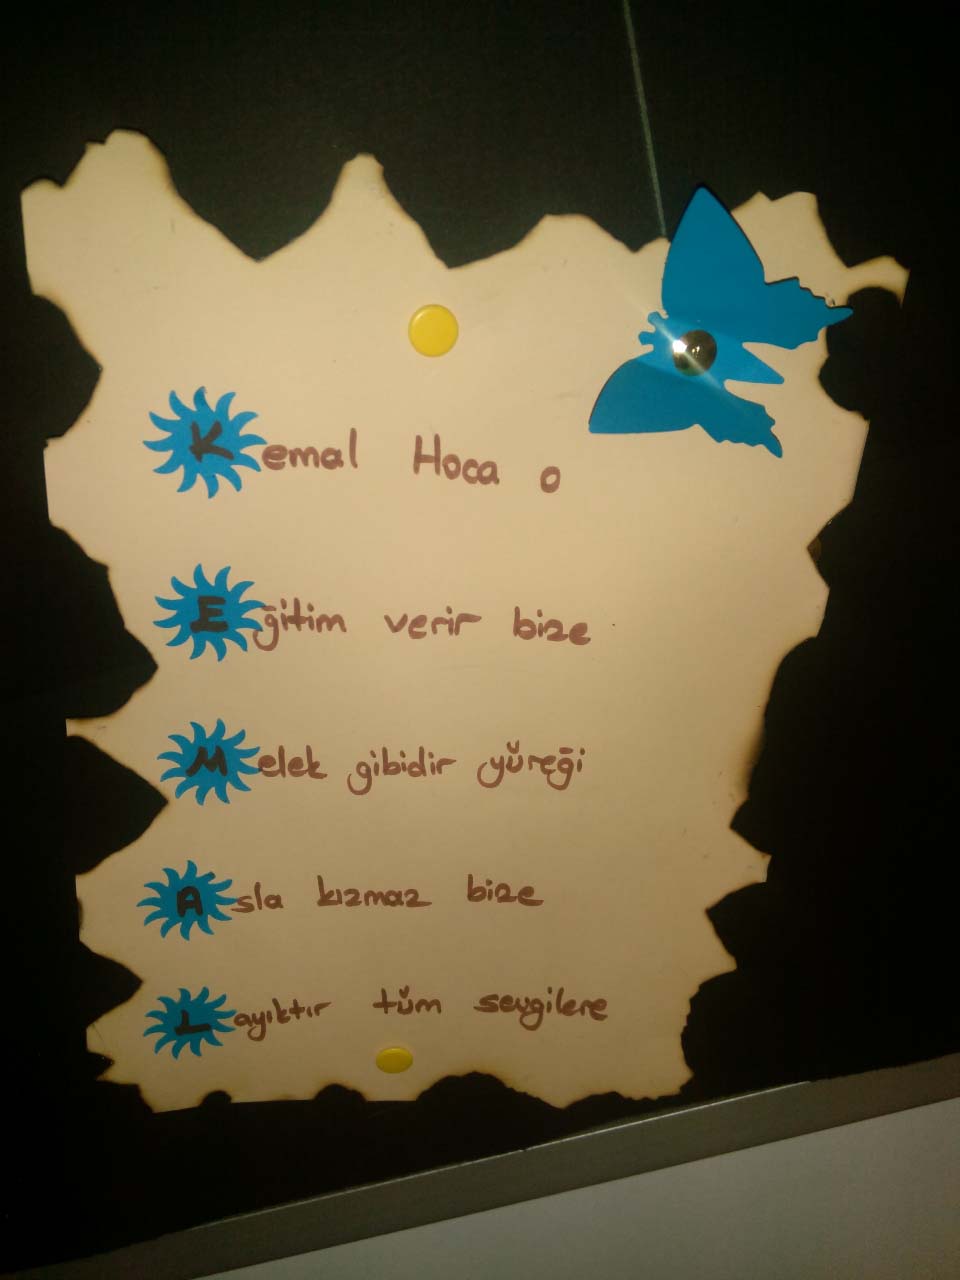 Kemal Hoca o
Eğitim verir bize
Melek gibidir yüreği
Asla kızmaz bize
Layıktır tüm sevgilere